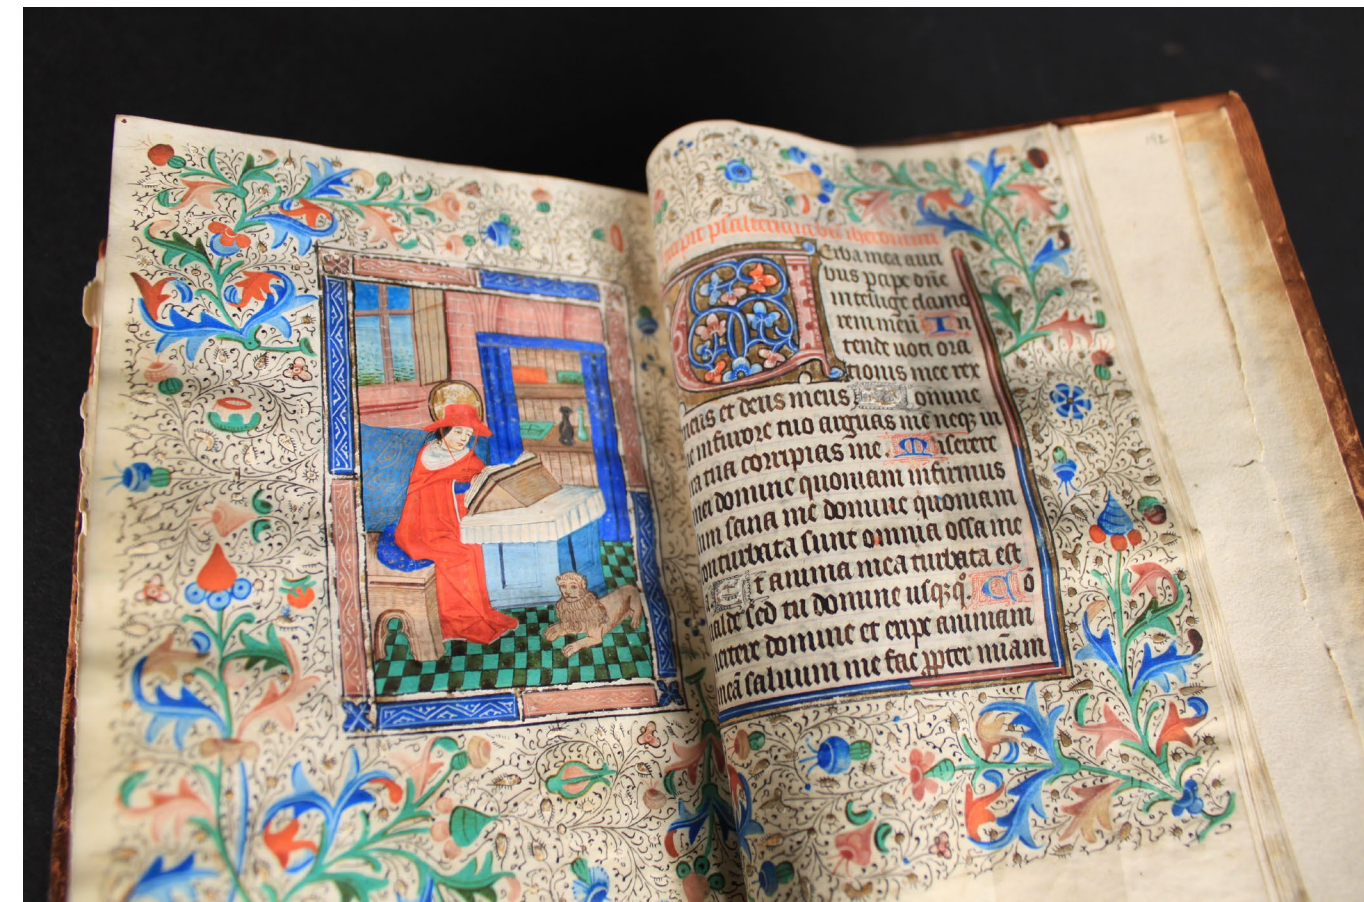 psalterium bti iheronimi
Verba mea auri
bus pcipe dñe
intellige clamo
rem meū In
tende uoci ora
tionis mee rex
meus et deus meus Domine
ne in furore tuo arguas me neqꝫ in
ira tua corripias me Miserere
mei domine quoniam infirmus
sum sana me domine quoniam
conturbata sunt omnia ossa me
Et anima mea turbata est
ualde sed tu domine usqꝫqº Cō
uertere domine et eripe animam
meā saluum me fac ꝓpter miām